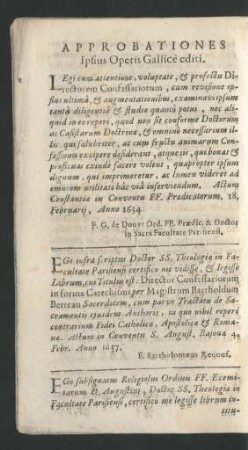 APPROBATIONES
Ipsius Operis Gallicè editi.
LEgi cum attentione, voluptate, & profectu Di-
rectorem Confessariorum, cum revisione ip-
sius ultimâ, & augmentationibus, examinavi ipsum
tantâ diligentiâ & studio quanto potui, nec ali-
quid in eo reperi, quod non sit conforme Doctorum
ac Casistarum Doctrinæ, & omninò necessarium il-
lis qui salubriter, ac cum fructu animarum Con-
fessionem excipere desiderant, atque iis, qui bonas &
proficuas exinde facere volunt, quapropter ipsum
dignum, qui imprimeretur, ac lumen videret ad
omnium utilitati hâc viâ inserviendum. Actum
Constantia in Conventu FF. Prædicatorum, 18,
Februarij, Anno 1634.
F. G. de Douvi Ord. FF. Prædic. & Doctor
in Sacra Facultate Parisiens.
EGo infra scriptus Doctor SS. Theologiæ in Fa-
cultate Parisiensi certifico me vidisse, & legisse
Librum, cui Titulus est: Director Confessariorum
in forma Catechismi per Magistrum Bartholdum
Bertran Sacerdotem, cum parvo Tractatu de Sa-
cramentis ejusdem Autharis, in quo nihil reperi
contrarium Fidei Catholicæ, Apostolicæ & Roma-
næ. Actum in Conventu S. August. Bajoca 4,
Febr. Anno 1637.
F. Bartholomæus Renouf.
EGo subsignatus Religiosus Ordinis FF. Eremi-
tarum D. Augustini, Doctor SS. Theologiæ in
Facultate Parisiensi, certifico me legisse librum in-